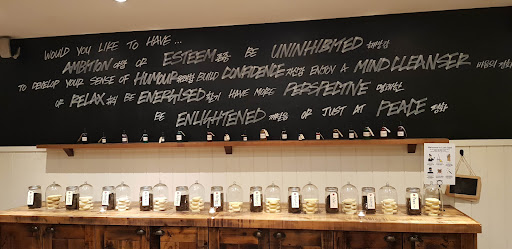 WOULD YOU LIKE TO HAVE ...
AMBITION 야망 OR ESTEEM 존중 BE UNINHIBITED
TO DEVELOP YOUR SENSE OF HUMOUR BUILD CONFIDENCE 자신감 ENJOY A MIND CLEANSER
OR RELAX BE ENERGISED HAVE MORE PERSPECTIVE
BE ENLIGHTENED OR JUST AT PEACE 평화